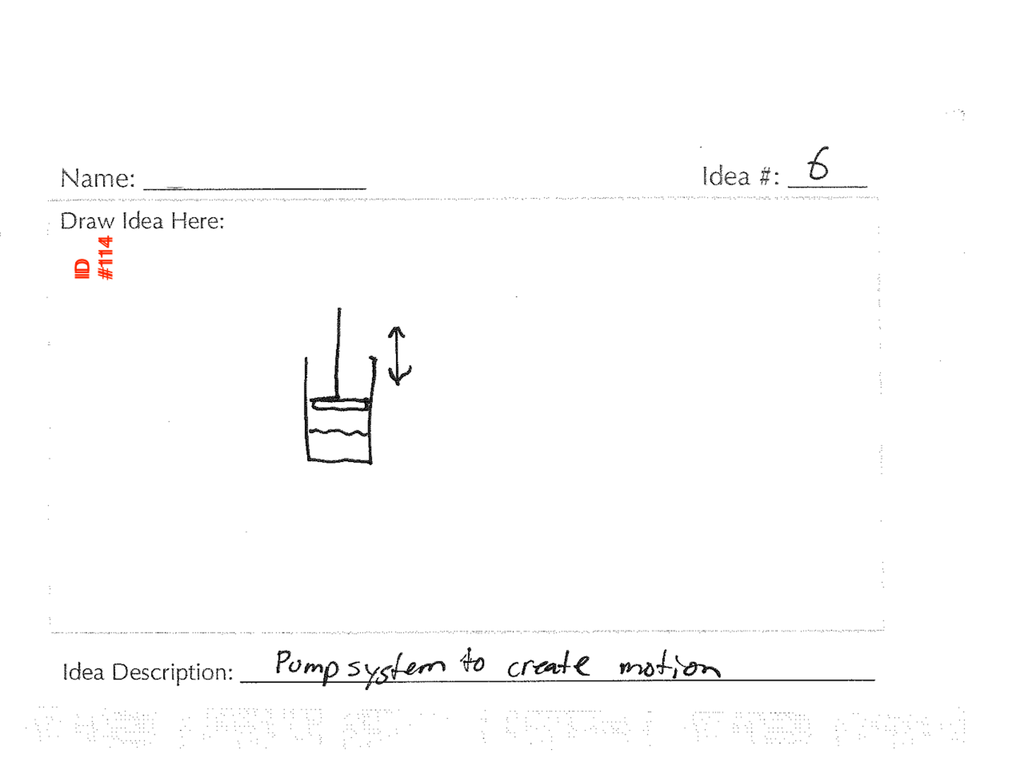 Name:
Idea #: 6
Draw Idea Here:
IID
#114
Idea Description: Pump system to create motion